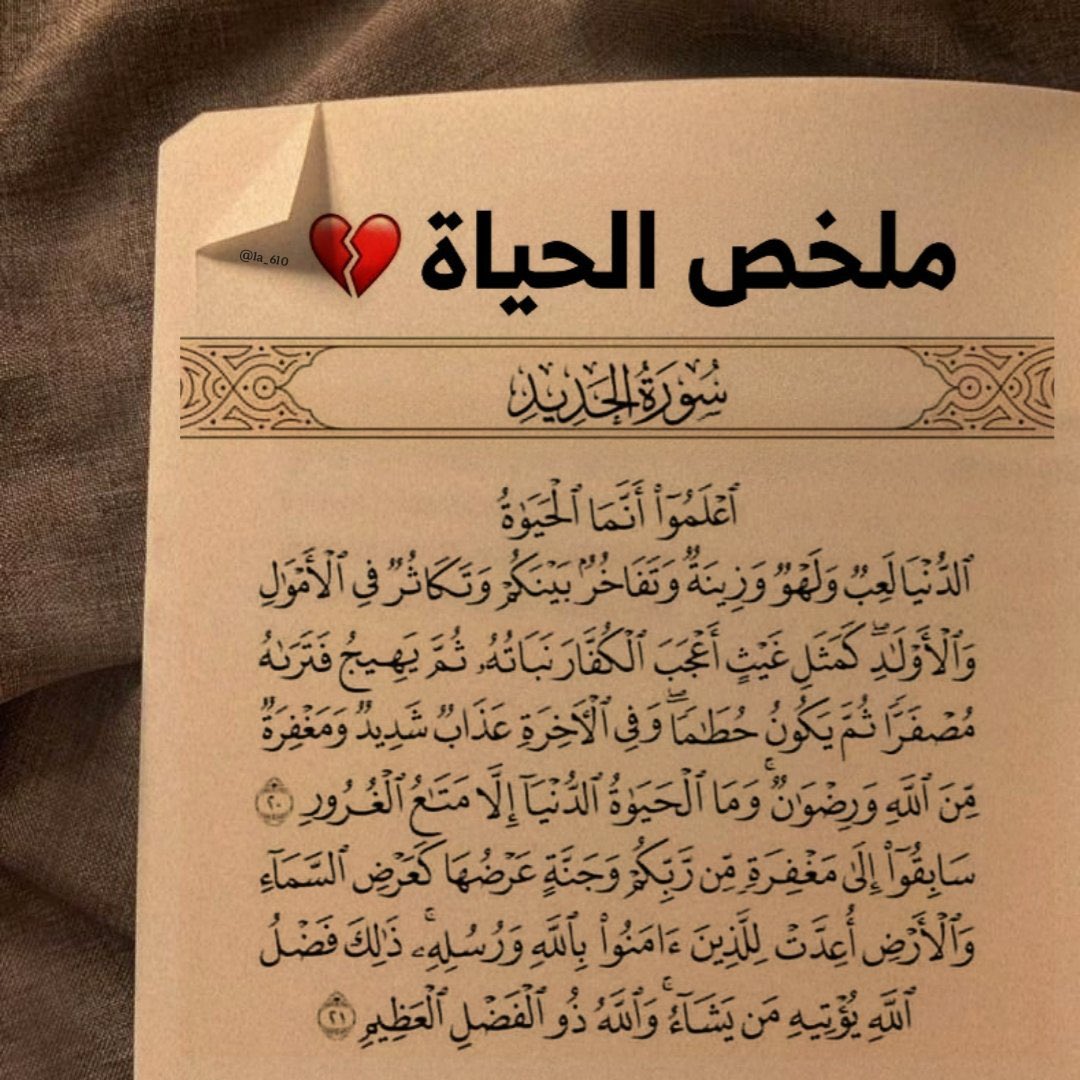 ملخص الحياة 💔
@1a_610
سُورَةُ الحَدِيدِ
ٱعۡلَمُوٓاْ أَنَّمَا ٱلۡحَيَوٰةُ
ٱلدُّنۡيَا لَعِبٞ وَلَهۡوٞ وَزِينَةٞ وَتَفَاخُرُۢ بَيۡنَكُمۡ وَتَكَاثُرٞ فِي ٱلۡأَمۡوَٰلِ
وَٱلۡأَوۡلَٰدِۖ كَمَثَلِ غَيۡثٍ أَعۡجَبَ ٱلۡكُفَّارَ نَبَاتُهُۥ ثُمَّ يَهِيجُ فَتَرَىٰهُ
مُصۡفَرّٗا ثُمَّ يَكُونُ حُطَٰمٗاۖ وَفِي ٱلۡأٓخِرَةِ عَذَابٞ شَدِيدٞ وَمَغۡفِرَةٞ
مِّنَ ٱللَّهِ وَرِضۡوَٰنٞۚ وَمَا ٱلۡحَيَوٰةُ ٱلدُّنۡيَآ إِلَّا مَتَٰعُ ٱلۡغُرُورِ ٢٠
سَابِقُوٓاْ إِلَىٰ مَغۡفِرَةٖ مِّن رَّبِّكُمۡ وَجَنَّةٍ عَرۡضُهَا كَعَرۡضِ ٱلسَّمَآءِ
وَٱلۡأَرۡضِ أُعِدَّتۡ لِلَّذِينَ ءَامَنُواْ بِٱللَّهِ وَرُسُلِهِۦۚ ذَٰلِكَ فَضۡلُ
ٱللَّهِ يُؤۡتِيهِ مَن يَشَآءُۚ وَٱللَّهُ ذُو ٱلۡفَضۡلِ ٱلۡعَظِيمِ ٢١